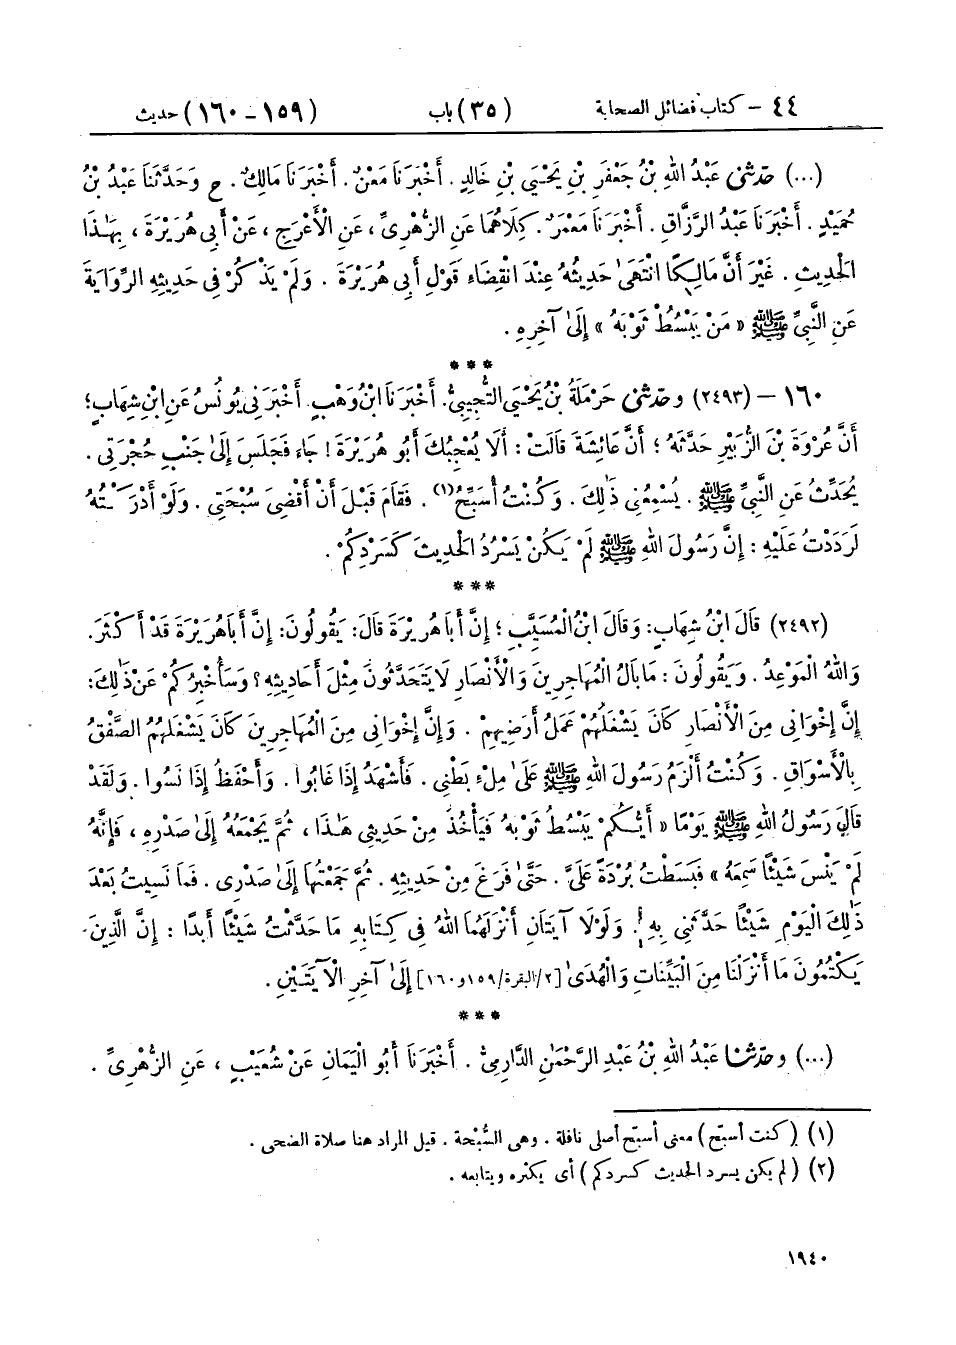 ٤٤ – كتاب فضائل الصحابة (٣٥) باب (١٥٩ – ١٦٠) حديث
(...) حَدَّثَنِي عَبْدُ اللهِ بْنُ جَعْفَرِ بْنِ يَحْيَىٰ بْنِ خَالِدٍ . أَخْبَرَنَا مَعْنٌ . أَخْبَرَنَا مَالِكٌ . ح وَحَدَّثَنَا عَبْدُ بْنُ
حُمَيْدٍ . أَخْبَرَنَا عَبْدُ الرَّزَّاقِ . أَخْبَرَنَا مَعْمَرٌ . كِلَاهُمَا عَنِ الزُّهْرِيِّ ، عَنِ الْأَعْرَجِ ، عَنْ أَبِي هُرَيْرَةَ ، بِهَـٰذَا
الْحَدِيثِ . غَيْرَ أَنَّ مَالِكًا انْتَهَىٰ حَدِيثُهُ عِنْدَ انْقِضَاءِ قَوْلِ أَبِي هُرَيْرَةَ . وَلَمْ يَذْكُرْ فِي حَدِيثِهِ الرِّوَايَةَ
عَنِ النَّبِيِّ ﷺ « مَنْ يَبْسُطْ ثَوْبَهُ » إِلَىٰ آخِرِهِ .
* * *
١٦٠ – (٢٤٩٣) وحَدَّثَنِي حَرْمَلَةُ بْنُ يَحْيَى التُّجِيبِيُّ. أَخْبَرَنَا ابْنُ وَهْبٍ. أَخْبَرَنِي يُونُسُ عَنِ ابْنِ شِهَابٍ؛
أَنَّ عُرْوَةَ بْنَ الزُّبَيْرِ حَدَّثَهُ ؛ أَنَّ عَائِشَةَ قَالَتْ : أَلَا يُعْجِبُكَ أَبُو هُرَيْرَةَ ! جَاءَ فَجَلَسَ إِلَىٰ جَنْبِ حُجْرَتِي .
يُحَدِّثُ عَنِ النَّبِيِّ ﷺ . يُسْمِعُنِي ذَٰلِكَ . وَكُنْتُ أُسَبِّحُ(١) . فَقَامَ قَبْلَ أَنْ أَقْضِيَ سُبْحَتِي . وَلَوْ أَدْرَكْتُهُ
لَرَدَدْتُ عَلَيْهِ : إِنَّ رَسُولَ اللهِ ﷺ لَمْ يَكُنْ يَسْرُدُ الْحَدِيثَ كَسَرْدِكُمْ .
* * *
(٢٤٩٢) قَالَ ابْنُ شِهَابٍ: وَقَالَ ابْنُ الْمُسَيَّبِ ؛ إِنَّ أَبَا هُرَيْرَةَ قَالَ: يَقُولُونَ: إِنَّ أَبَا هُرَيْرَةَ قَدْ أَكْثَرَ.
وَاللهُ الْمَوْعِدُ . وَيَقُولُونَ : مَا بَالُ الْمُهَاجِرِينَ وَالْأَنْصَارِ لَا يَتَحَدَّثُونَ مِثْلَ أَحَادِيثِهِ ؟ وَسَأُخْبِرُكُمْ عَنْ ذَٰلِكَ:
إِنَّ إِخْوَانِي مِنَ الْأَنْصَارِ كَانَ يَشْغَلُهُمْ عَمَلُ أَرَضِيهِمْ . وَإِنَّ إِخْوَانِي مِنَ الْمُهَاجِرِينَ كَانَ يَشْغَلُهُمُ الصَّفْقُ
بِالْأَسْوَاقِ . وَكُنْتُ أَلْزَمُ رَسُولَ اللهِ ﷺ عَلَىٰ مِلْءِ بَطْنِي . فَأَشْهَدُ إِذَا غَابُوا . وَأَحْفَظُ إِذَا نَسُوا . وَلَقَدْ
قَالَ رَسُولُ اللهِ ﷺ يَوْمًا « أَيُّكُمْ يَبْسُطُ ثَوْبَهُ فَيَأْخُذُ مِنْ حَدِيثِي هَـٰذَا ، ثُمَّ يَجْمَعُهُ إِلَىٰ صَدْرِهِ ، فَإِنَّهُ
لَمْ يَنْسَ شَيْئًا سَمِعَهُ » فَبَسَطْتُ بُرْدَةً عَلَيَّ . حَتَّىٰ فَرَغَ مِنْ حَدِيثِهِ . ثُمَّ جَمَعْتُهَا إِلَىٰ صَدْرِي . فَمَا نَسِيتُ بَعْدَ
ذَٰلِكَ الْيَوْمِ شَيْئًا حَدَّثَنِي بِهِ . وَلَوْلَا آيَتَانِ أَنْزَلَهُمَا اللهُ فِي كِتَابِهِ مَا حَدَّثْتُ شَيْئًا أَبَدًا : إِنَّ الَّذِينَ
يَكْتُمُونَ مَا أَنْزَلْنَا مِنَ الْبَيِّنَاتِ وَالْهُدَىٰ [٢/البقرة/١٥٩و١٦٠] إِلَىٰ آخِرِ الْآيَتَيْنِ .
* * *
(...) وحَدَّثَنَا عَبْدُ اللهِ بْنُ عَبْدِ الرَّحْمَـٰنِ الدَّارِمِيُّ . أَخْبَرَنَا أَبُو الْيَمَانِ عَنْ شُعَيْبٍ ، عَنِ الزُّهْرِيِّ .
(١) (كنت أسبّح) معنى أسبّح أصلى نافلة . وهى السُّبْحة . قيل المراد هنا صلاة الضحى .
(٢) ( لم يكن يسرد الحديث كسردكم ) أى يكثره ويتابعه .
١٩٤٠